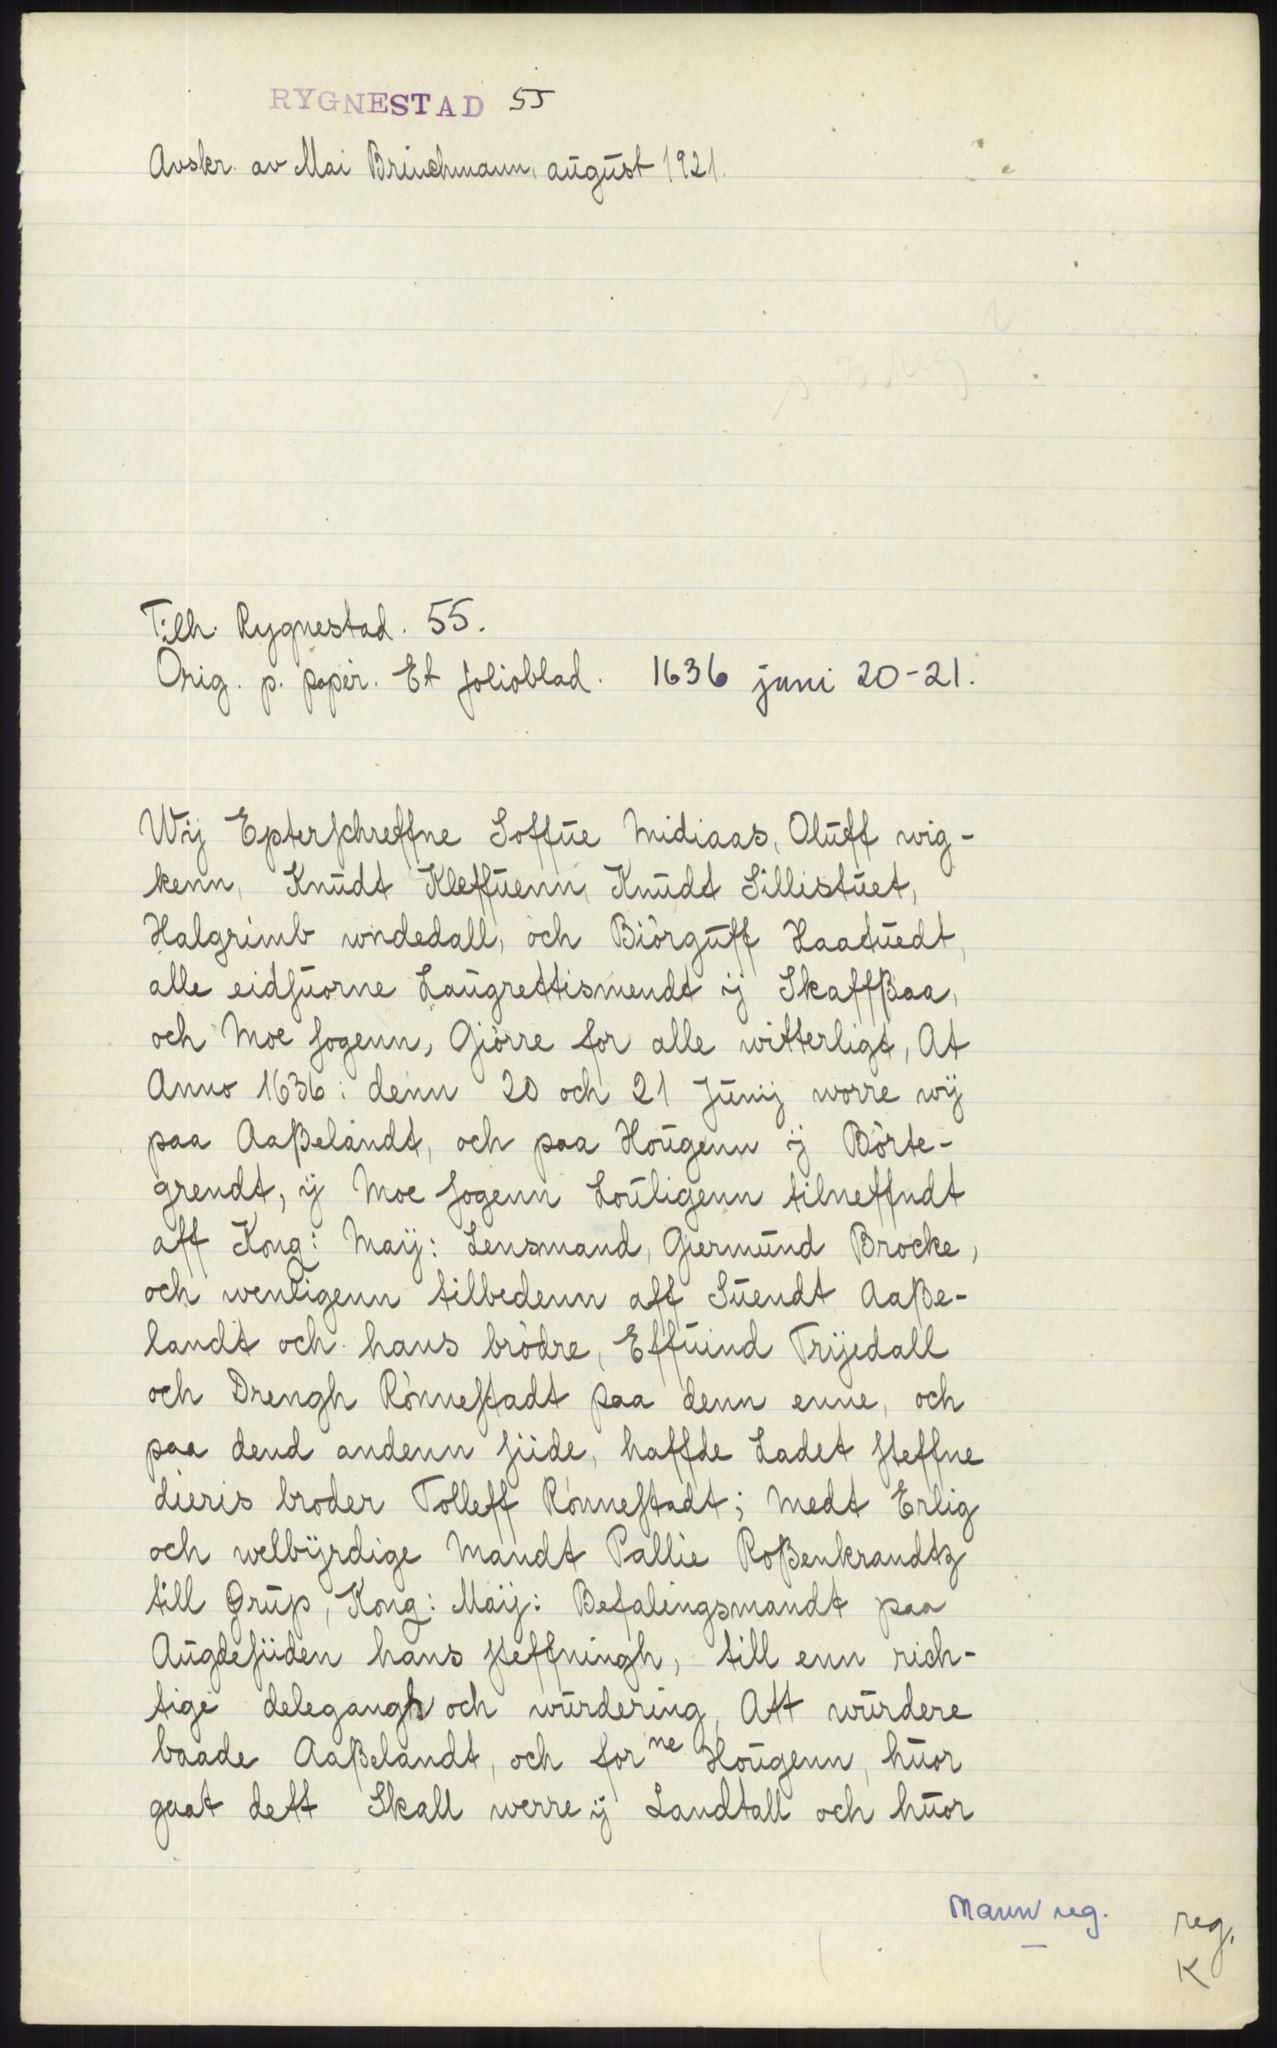 RYGNESTAD 55
Avskr. av Mai Brinchmann, august 1921.
Tilh. Rygnestad. 55.
Orig. p. papir. Et folioblad. 1636 juni 20-21.
Wij Epterschreffne Soffue Midiaas, Oluff wig-
kenn, Knudt Kleffuenn, Knudt Sillistuet,
Halgrimb wndedall, och Biòrguff Haatuedt,
alle eidsuorne Laugrettismendt ÿ Skaffßaa,
och Moe sogenn, Giòrre for alle witterligt, At
Anno 1636: denn 20 och 21 Junij worre wÿ
paa Aaßelandt, och paa Hougenn ÿ Bòrte-
grendt, ÿ Moe sogenn Louligenn tilneffndt
aff Kong: Maÿ: Lensmand, Giermund Brocke,
och wenligenn tilbedenn aff Suendt Aaße-
landt och hans bròdre, Effuind Trÿedall
och Drengh Rònnestadt paa denn enne, och
paa dend andenn siide, haffde Ladet steffne
dieris broder Tolleff Rònnestadt; medt Erlig
och welbÿrdige Mandt Pallie Roßenkrandtz
till Ørup, Kong: Maÿ: Befalingsmandt paa
Augdesiiden hans steffningh, till enn rich-
tige delegangh och wurdering, Att wurdere
baade Aaßelandt, och for ne Hougenn, huor
gaat dett Skall werre ÿ Landtall och huor
Mann reg.
reg.
K